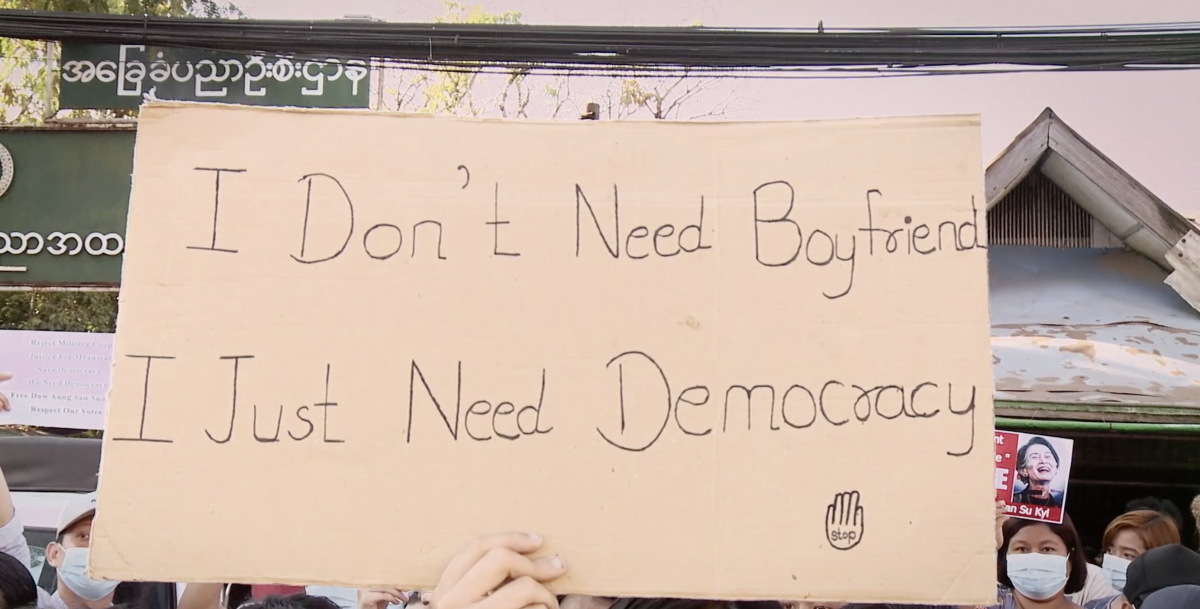 အခြေခံပညာဦးစီးဌာန
I Don't Need Boyfriend
I Just Need Democracy
stop
Reject Military Coup
Justice For Myanmar
Save Democracy
We Need Democracy
Free Daw Aung San Suu
Respect Our Votes
an Su Kyi